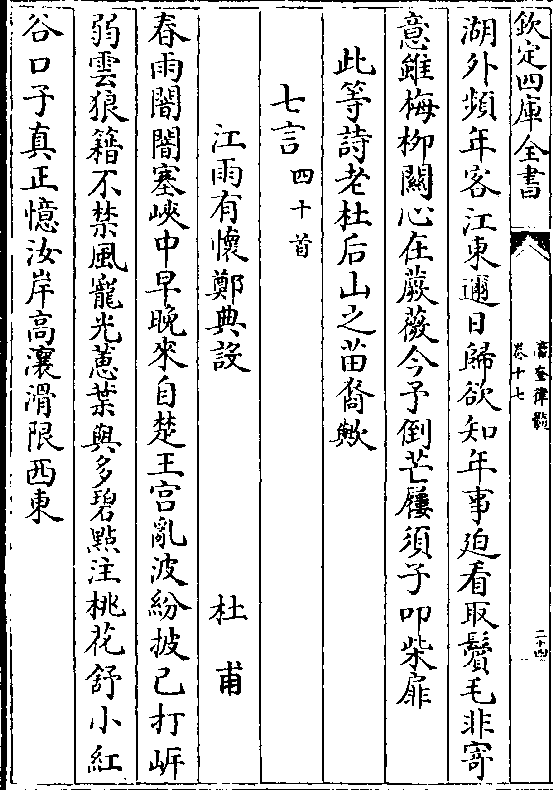 欽定四庫全書
瀛奎律髓
卷十七
二十四
湖外頻年客江東邇日歸欲知年事迫看取鬢毛非寄
意雖梅柳關心在蕨薇今予倒芒屨須子叩柴扉
此等詩老杜后山之苗裔歟
七言四十首
江雨有懷鄭典設
杜甫
春雨闇闇塞峽中早晚來自楚王宫亂波紛披已打岍
弱雲狼籍不禁風寵光蕙葉與多碧點注桃花舒小紅
谷口子真正憶汝岸髙瀼滑限西東